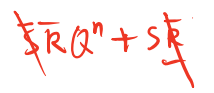 S̅R̅Qⁿ + SR